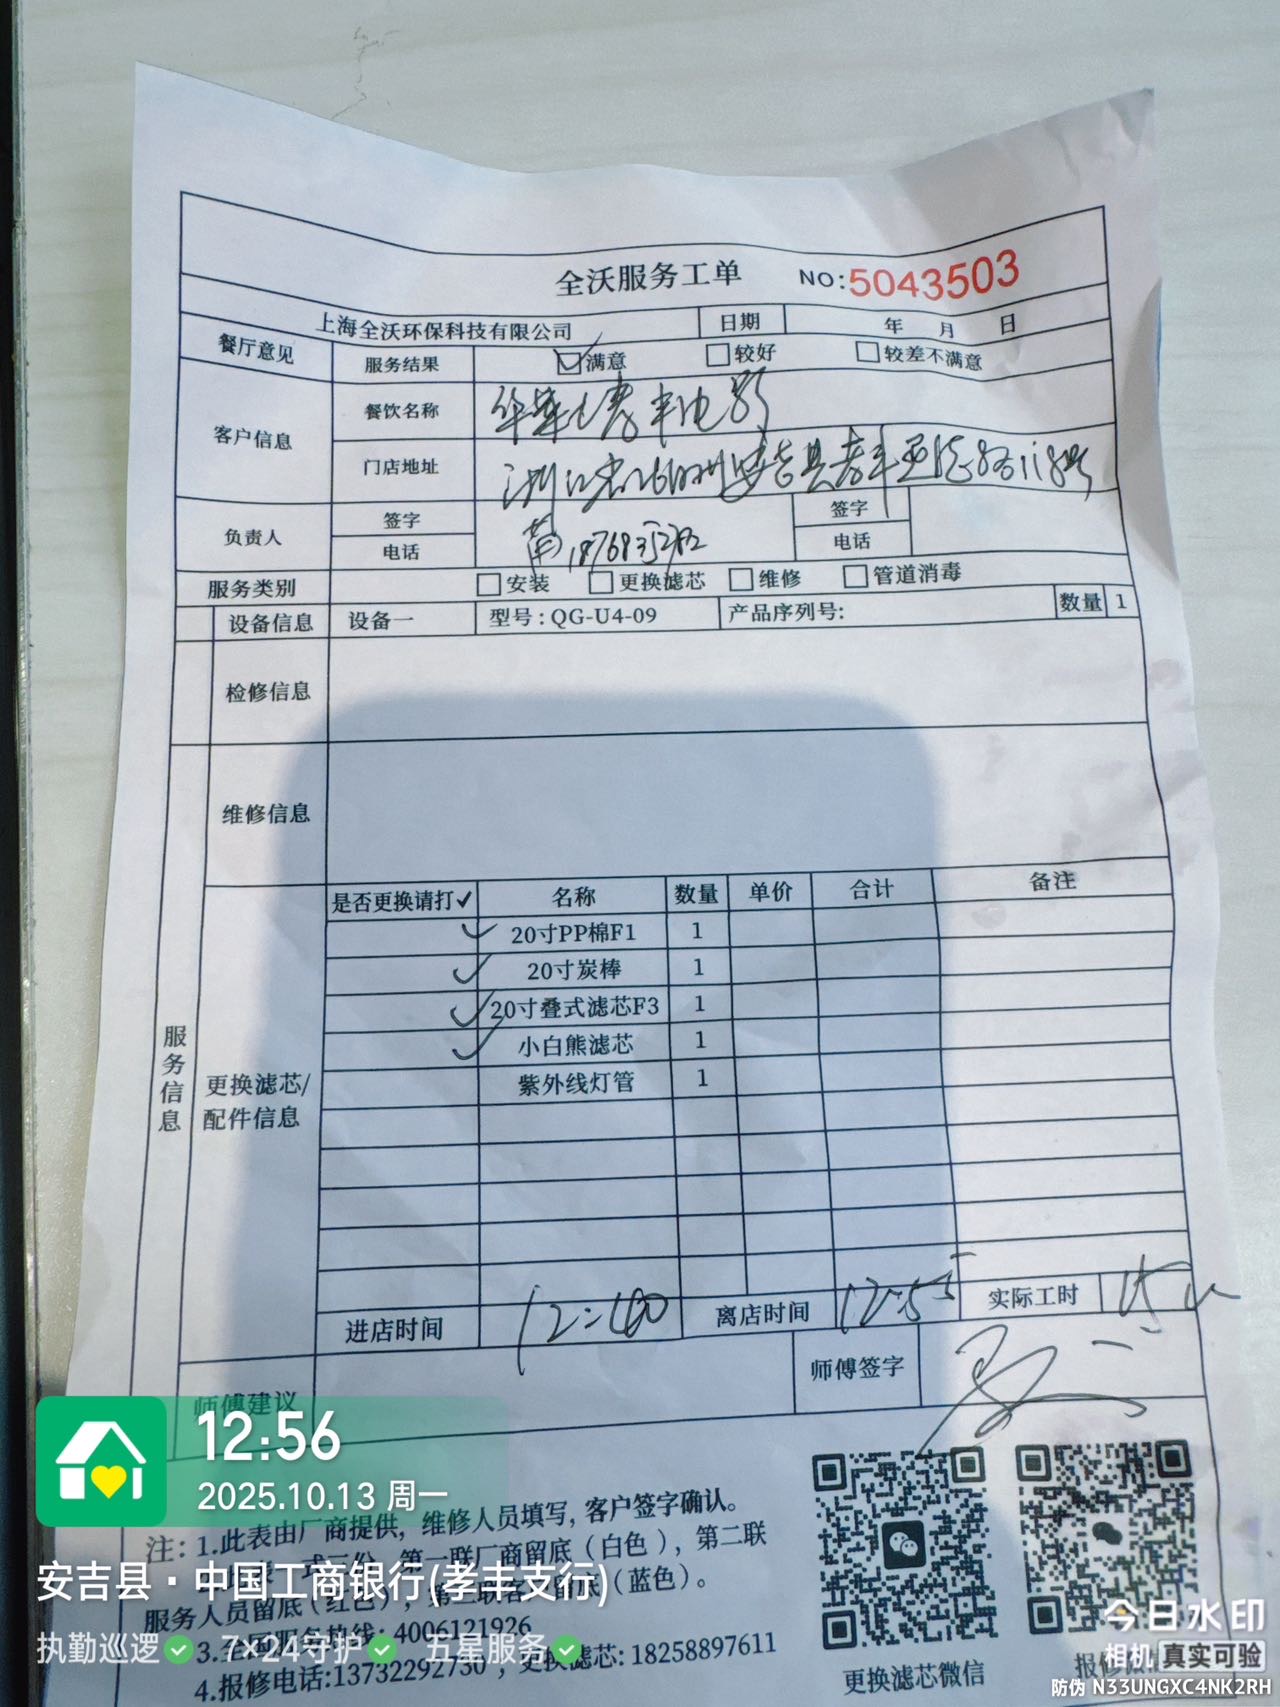 全沃服务工单 NO:5043503
上海全沃环保科技有限公司 日期 年 月 日
餐厅意见 服务结果 满意 较好 较差不满意
客户信息 餐饮名称 华莱士孝丰电影
门店地址 浙江省湖州安吉县孝丰 118号
负责人 签字 签字
电话 电话
服务类别 安装 更换滤芯 维修 管道消毒
设备信息 设备一 型号:QG-U4-09 产品序列号: 数量 1
检修信息
维修信息
服务信息
更换滤芯/
配件信息
是否更换请打✓ 名称 数量 单价 合计 备注
✓ 20寸PP棉F1 1
✓ 20寸炭棒 1
✓ 20寸叠式滤芯F3 1
✓ 小白熊滤芯 1
紫外线灯管 1
进店时间 12:40 离店时间 12:55 实际工时
师傅建议 师傅签字
12:56
2025.10.13 周一
注:1.此表由厂商提供,维修人员填写,客户签字确认。
一式三份,第一联厂商留底(白色),第二联
安吉县·中国工商银行(孝丰支行)
服务人员留底(红色),第三联客户留底(蓝色)。
3.全国服务热线:4006121926
执勤巡逻 7×24守护 五星服务
4.报修电话:13732292730,更换滤芯:18258897611
更换滤芯微信
报修微信
今日水印
相机 真实可验
防伪 N33UNGXC4NK2RH